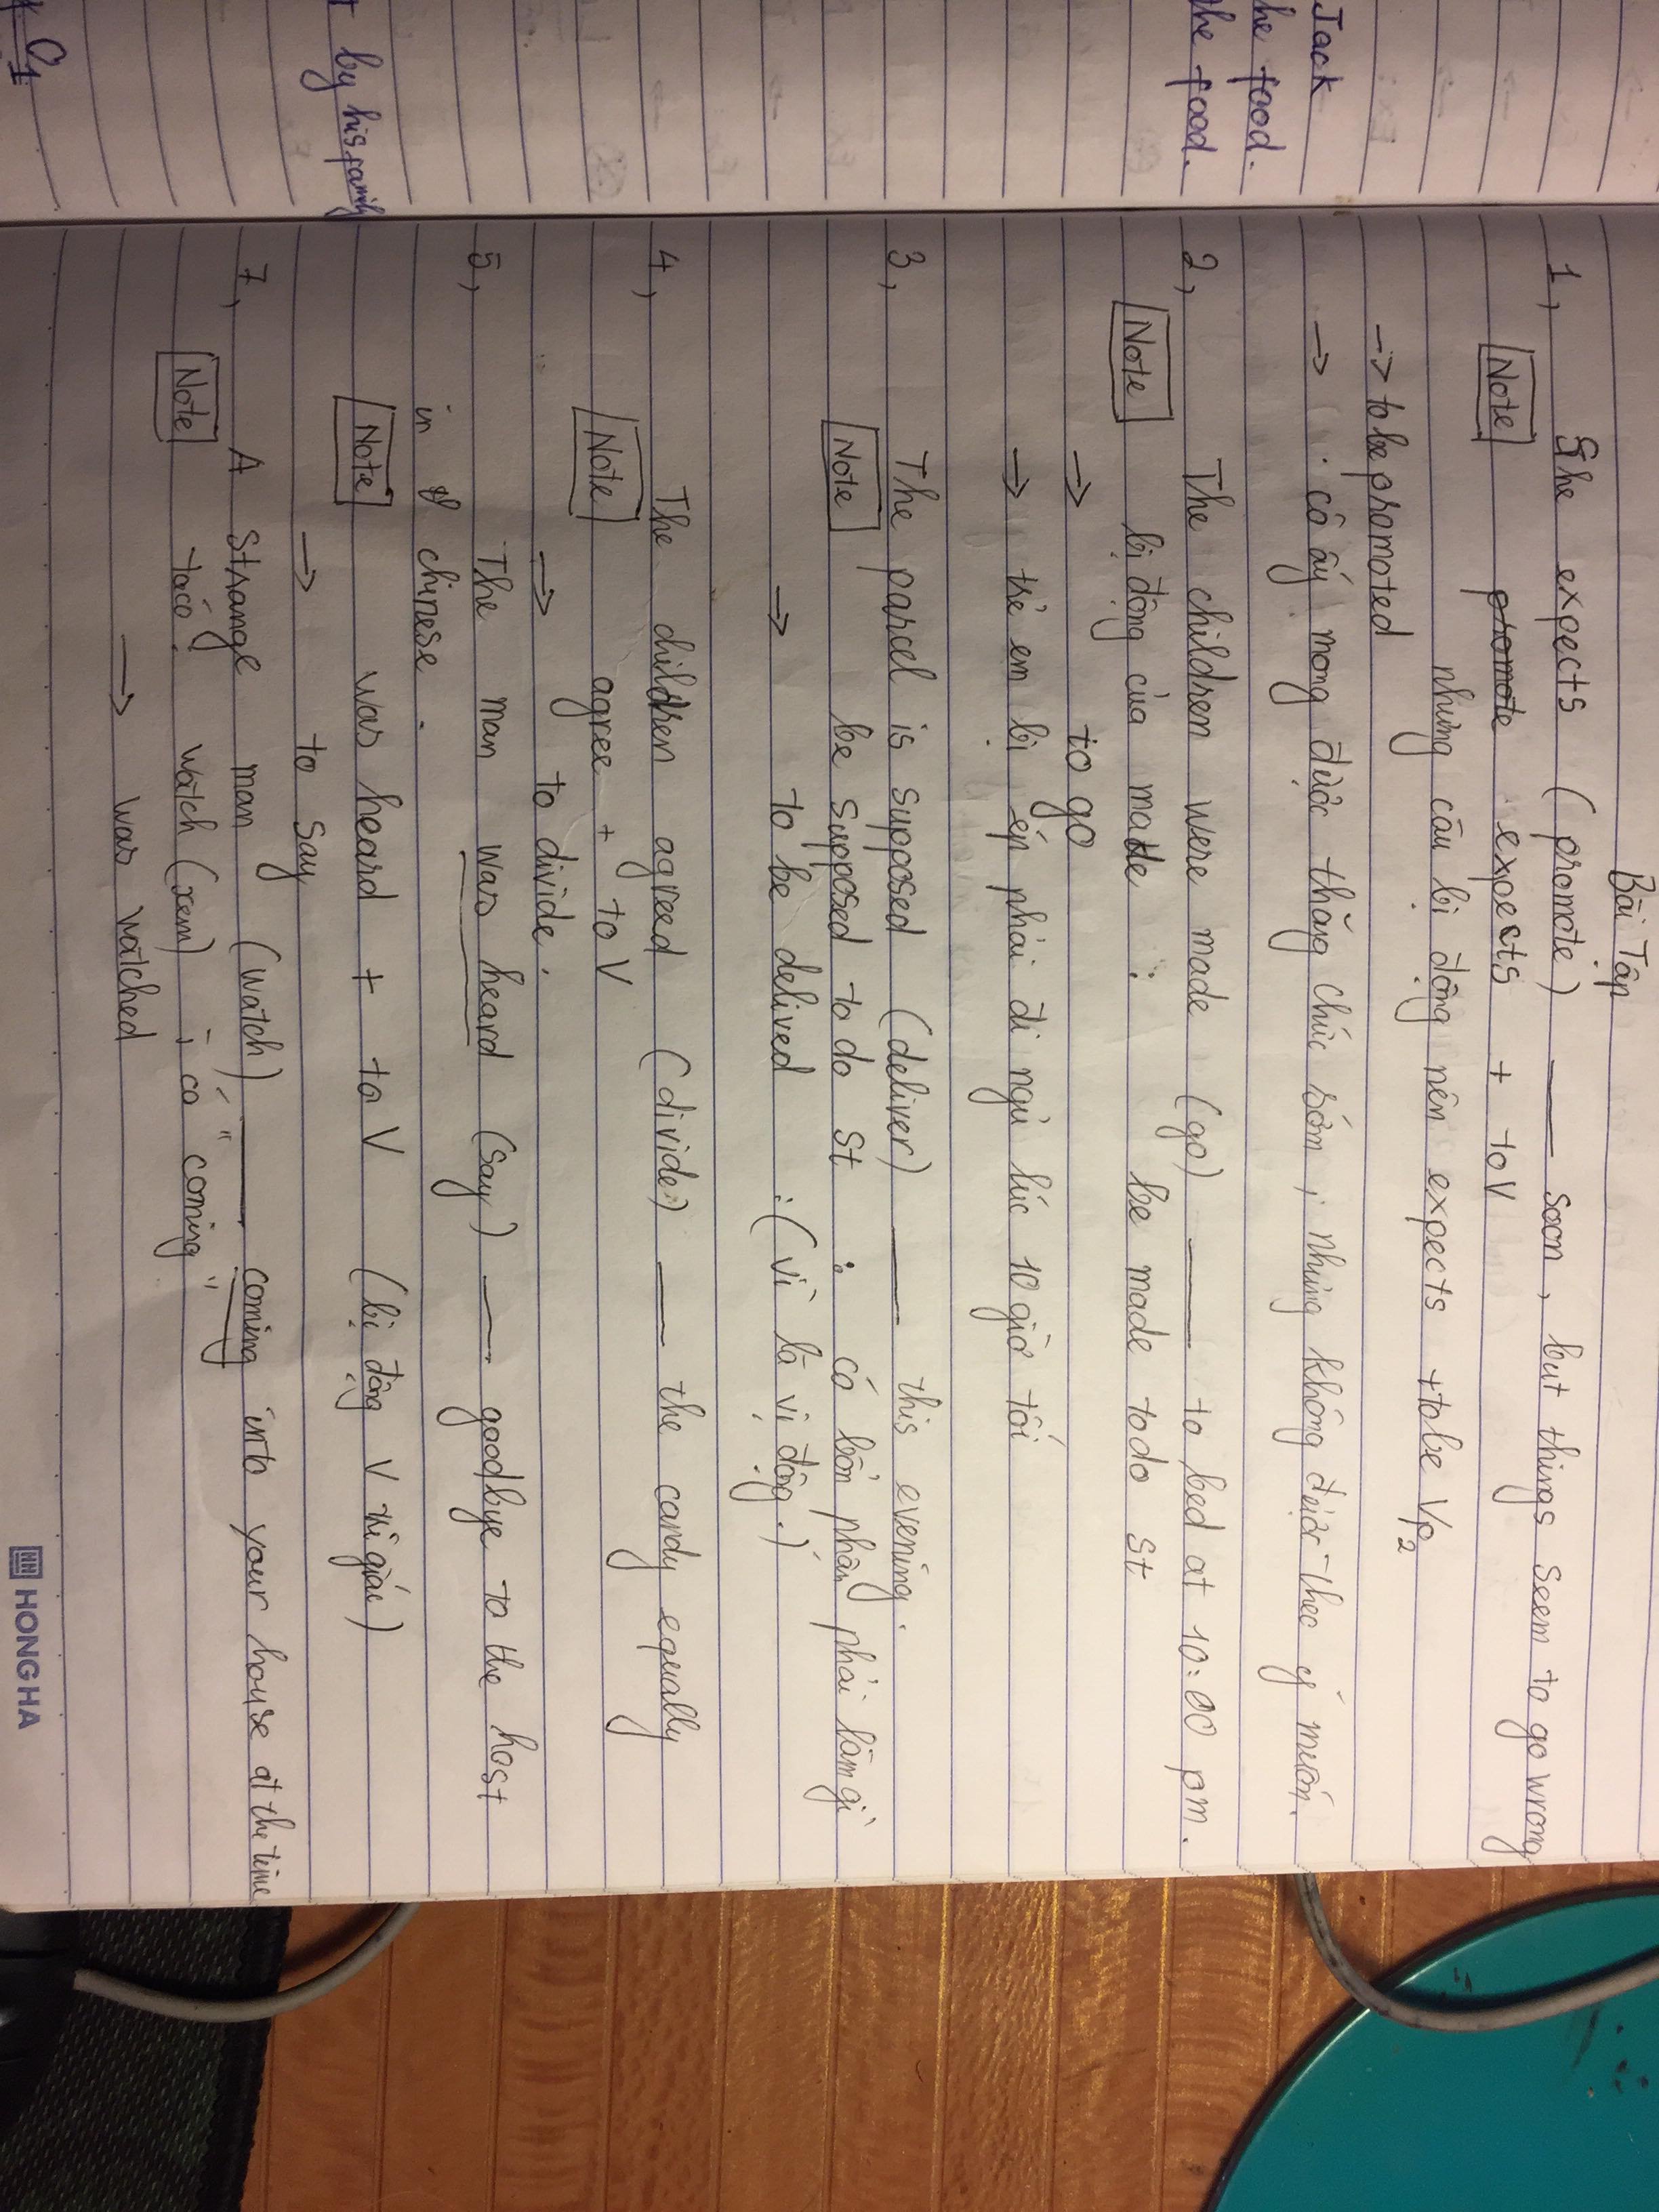 Jack
he food.
the food.
by his family
C1
Bài Tập
1, She expects (promote) ___ soon, but things seem to go wrong
Note promote expects + to V
nhưng câu bị động nên expects + to be Vp2
-> to be promoted
-> : cô ấy mong được thăng chức sớm, nhưng không được theo ý muốn.
2, The children were made (go) ___ to bed at 10:00 pm.
Note bị động của made : be made to do st
-> to go
-> trẻ em bị ép phải đi ngủ lúc 10 giờ tối
3, The parcel is supposed (deliver) ___ this evening.
Note be supposed to do st : có bổn phận phải làm gì
-> to be delived : (vì là vị động.)
4, The children agreed (divide) ___ the candy equally
Note agree + to V
-> to divide.
5, The man was heard (say) ___ goodbye to the host
in chinese.
Note was heard + to V (bị động V tri giác)
-> to say
7, A strange man (watch) ___ coming into your house at the time
Note ta có watch (xem) ; có "coming"
-> was watched
HONG HA